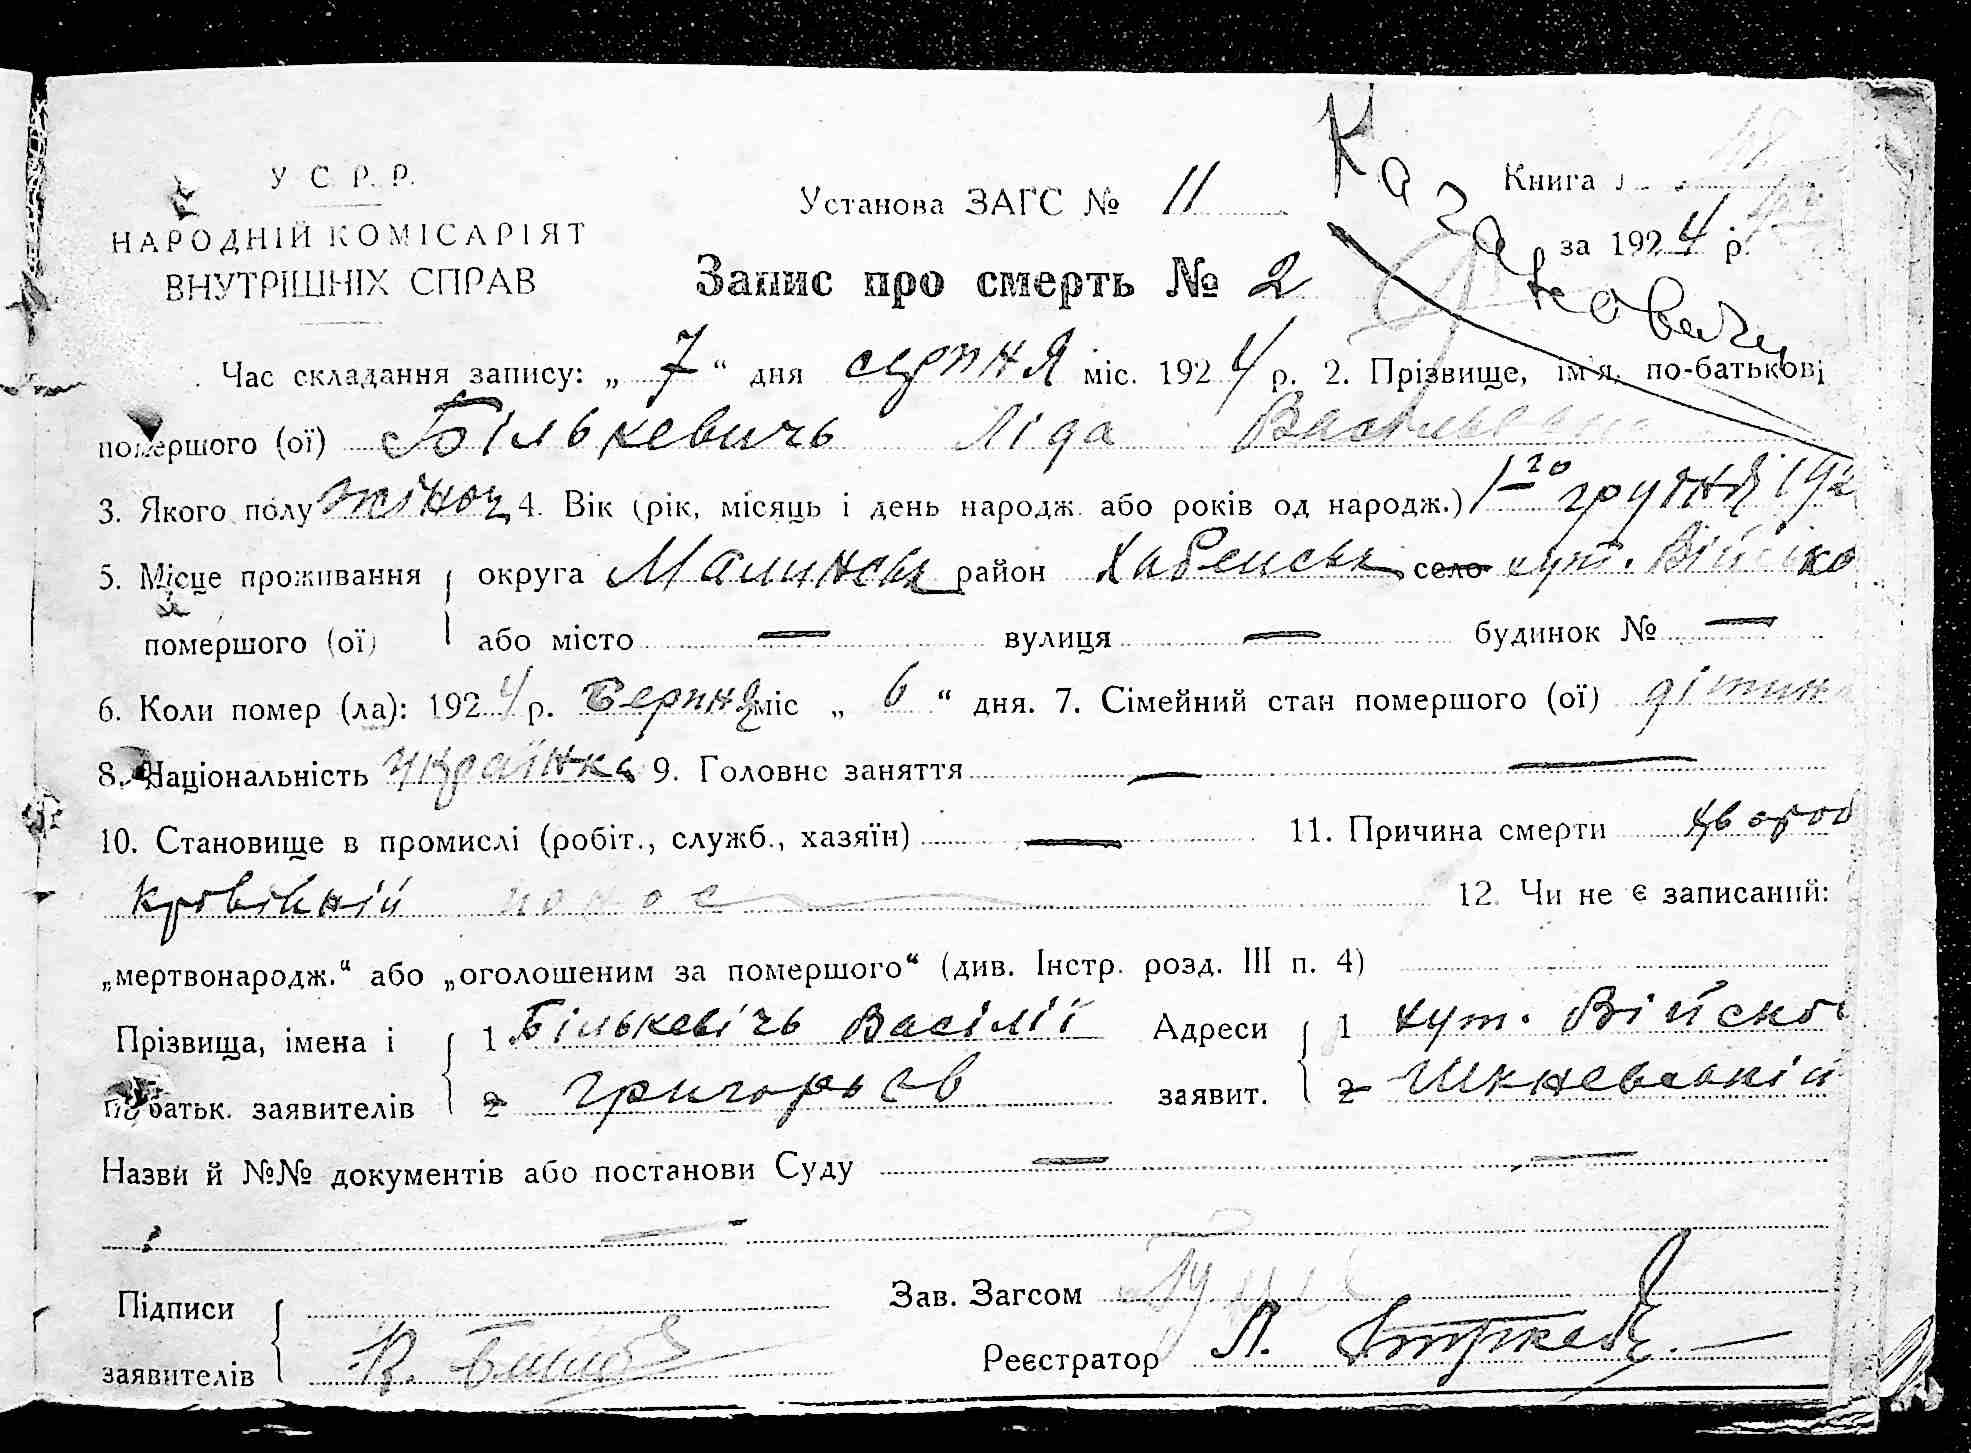 У С. Р. Р.
НАРОДНІЙ КОМІСАРІЯТ
ВНУТРІШНІХ СПРАВ
Установа ЗАГС № 11
Книга
за 1924 р.
Казаковичи
Запис про смерть № 2
Час складання запису: „ 7 “ дня серпня міс. 1924 р. 2. Прізвище, ім'я, по-батькові
помершого (ої) Бількевичь Ліда Васильевна
3. Якого полу жіноч. 4. Вік (рік, місяць і день народж. або років од народж.) 1го грудня 192
5. Місце проживання помершого (ої) { округа Малинськ район Хабенськ село хут. Війско
або місто — вулиця — будинок № —
6. Коли помер (ла): 1924 р. Серпня міс „ 6 “ дня. 7. Сімейний стан помершого (ої) дитина
8. Національність українка 9. Головне заняття — —
10. Становище в промислі (робіт., служб., хазяїн) — 11. Причина смерти
крівавний понос 12. Чи не є записаний:
„мертвонародж.“ або „оголошеним за помершого“ (див. Інстр. розд. III п. 4)
Прізвища, імена і по батьк. заявителів { 1 Бількевічь Васілій Адреси заявит. { 1 хут. Війско
2 Григорьев 2
Назви й №№ документів або постанови Суду — —
—
Підписи заявителів {
Зав. Загсом
Реєстратор Л.